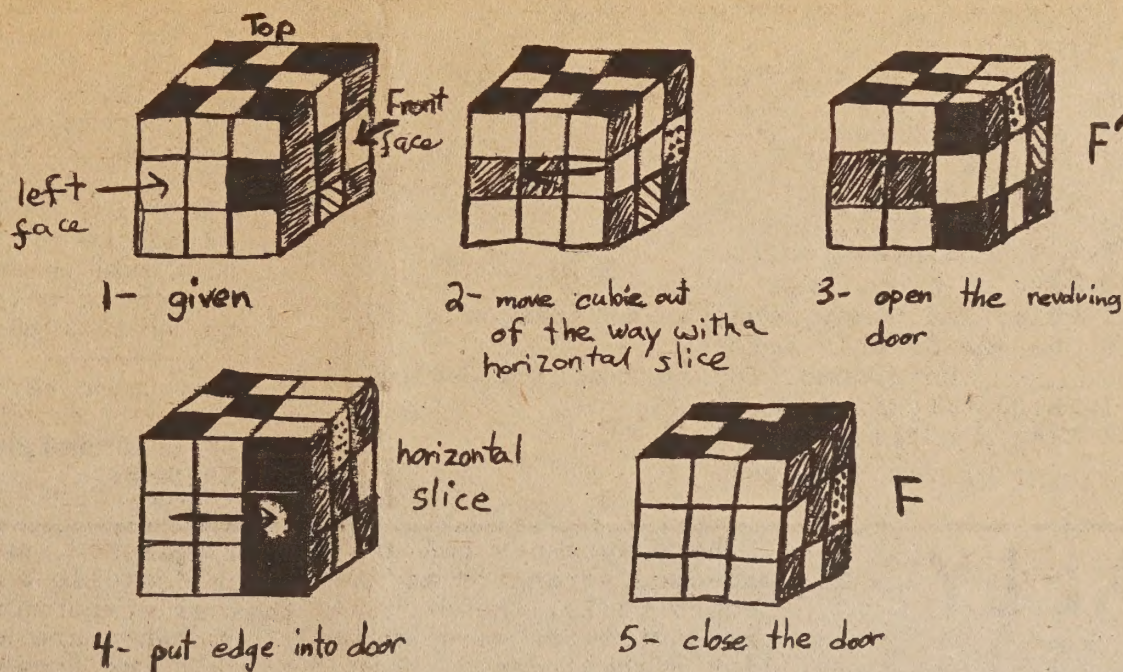 Top
Front
face
left
face
1- given
2- move cubie out
of the way with a
horizontal slice
F'
3- open the revolving
door
horizontal
slice
4- put edge into door
F
5- close the door